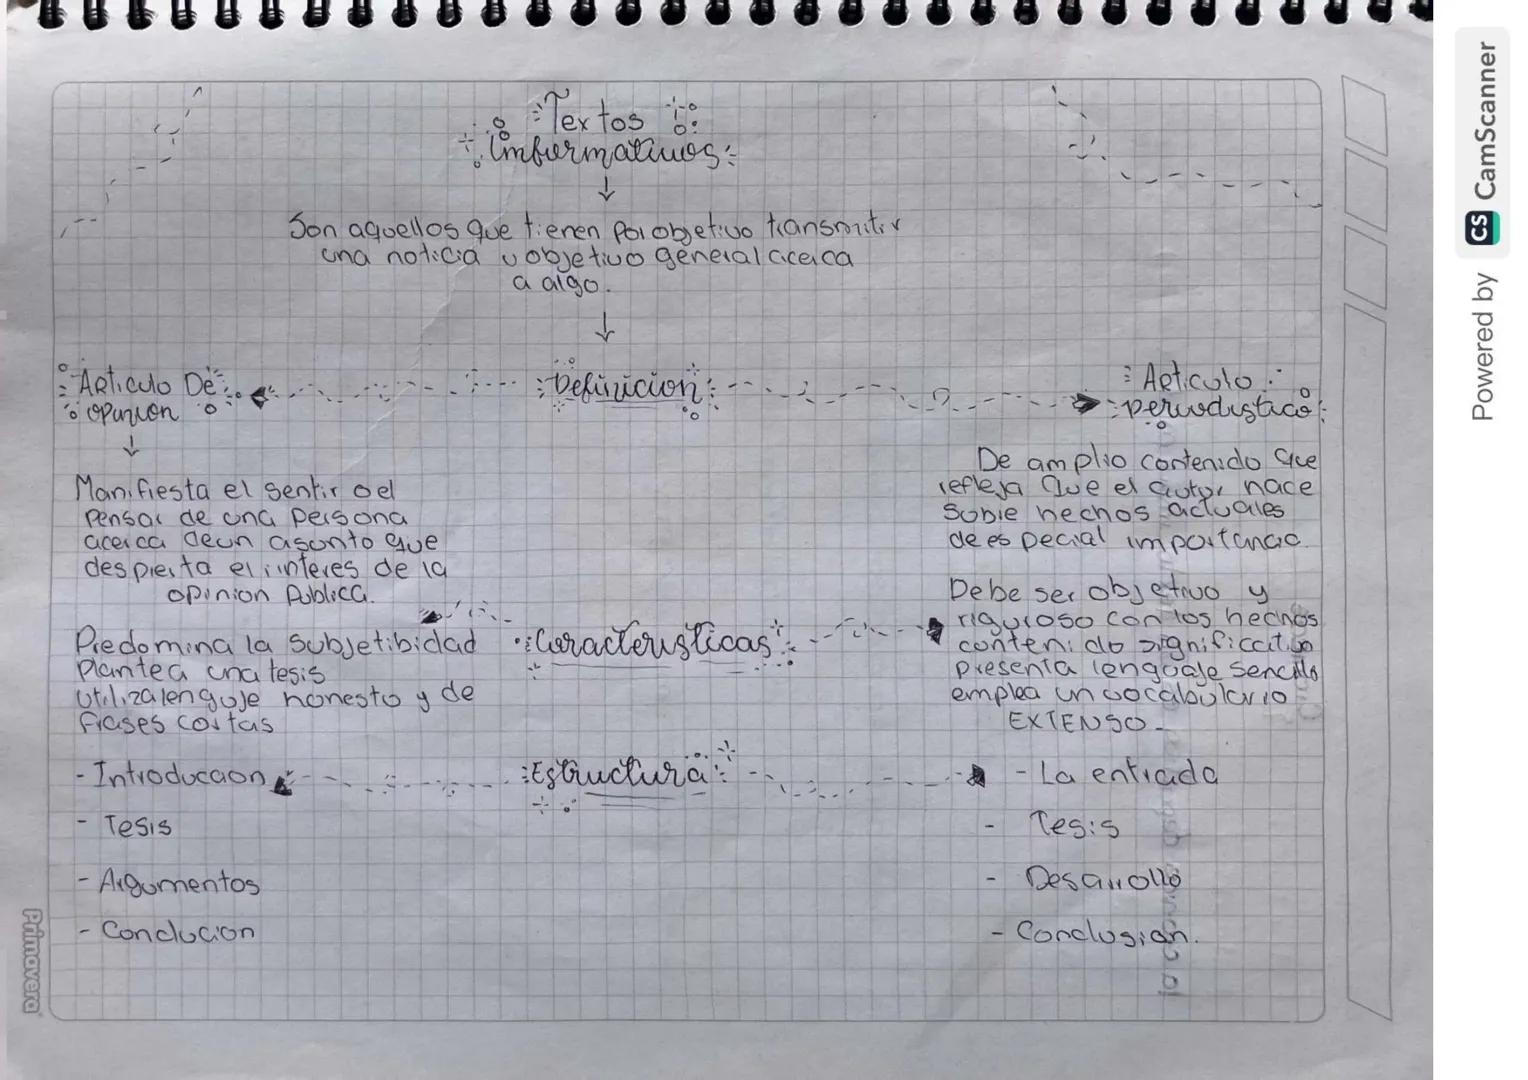 Textos
informativos
Son aquellos que tienen por objetivo transmitir
una noticia u objetivo general acerca
a algo.
Articulo De
opinion
Definicion
Articulo
periodistico
Manifiesta el sentir o el
Pensar de una persona
acerca deun asunto que
despierta el interes de la
opinion Publica.
De amplio contenido que
refleja que el autor hace
sobre hechos actuales
de especial importancia.
Caracteristicas
Predomina la subjetibidad
Plantea una tesis
Utiliza lenguaje honesto y de
frases cortas
Debe ser objetivo y
riguroso con los hechos
contenido significativo
Presenta lenguaje sencillo
emplea un vocabulario
EXTENSO
Estructura
- Introduccion
- Tesis
- Argumentos
- Conclucion
- La entrada
- Tesis
- Desarrollo
- Conclusion.
Primavera
Powered by CS CamScanner